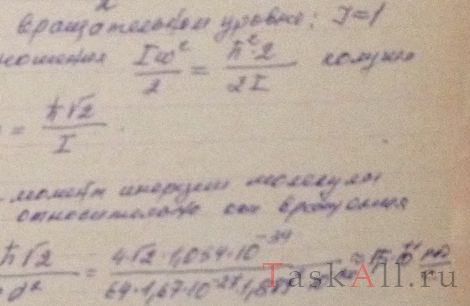 вращательном уровне: J=1
ношения Iω²/2 = ħ²·2/2I получим
= ħ√2/I
момент инерции молекулы
относительно оси вращения
ħ√2 = 4√2·1,054·10⁻³⁴
64·1,67·10⁻²⁷
TaskAll.ru